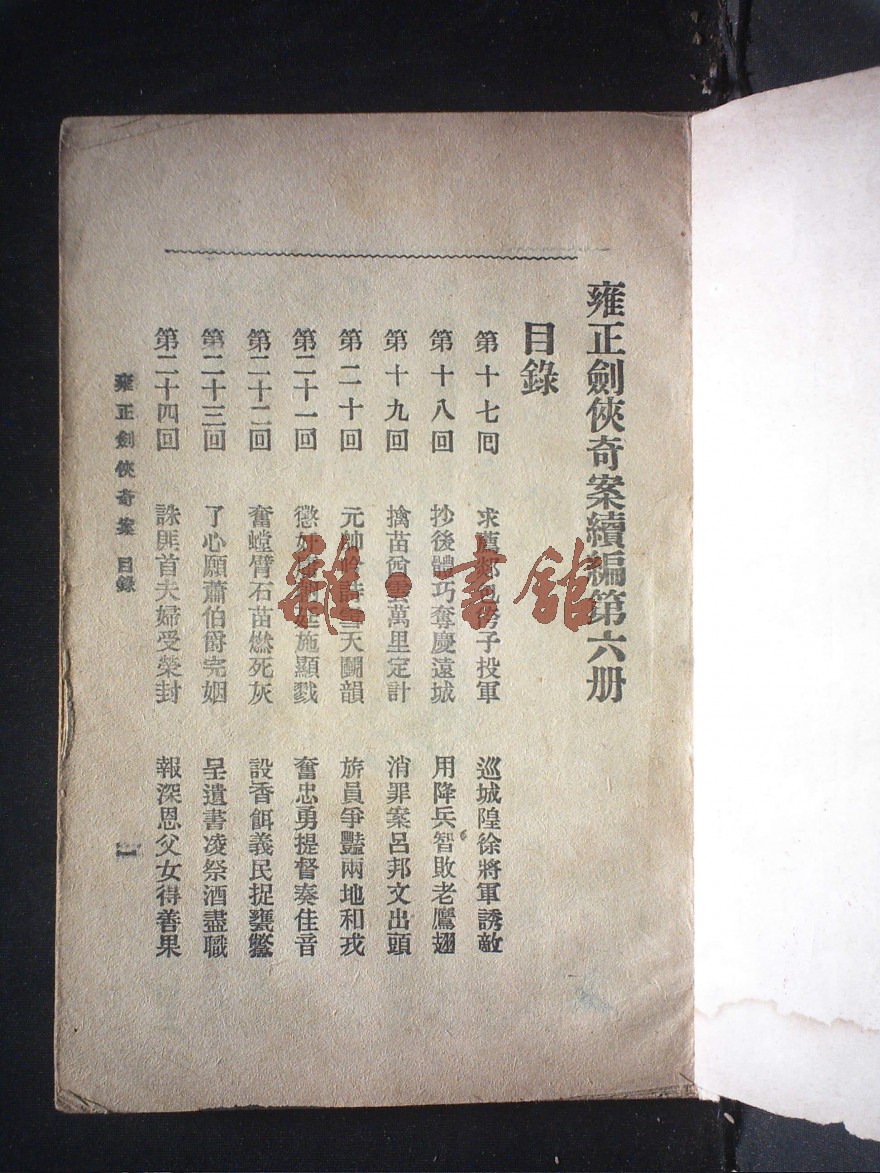 雍正劍俠奇案續編第六册
目錄
第十七回 求 子投軍 巡城隍徐將軍誘敵
第十八回 抄後體巧奪慶遠城 用降兵智敗老鷹翅
第十九回 擒苗酋雲萬里定計 消罪案呂邦文出頭
第二十回 元帥 詩雪天鬭韻 旂員爭豔兩地和戎
第二十一回 懲奸 施顯戮 奮忠勇提督奏佳音
第二十二回 奮螳臂石苗燃死灰 設香餌義民捉甕鱉
第二十三回 了心願蕭伯爵完姻 呈遺書凌祭酒盡職
第二十四回 誅匪首夫婦受榮封 報深恩父女得善果
雍正劍俠奇案 目錄
一
雜·書館